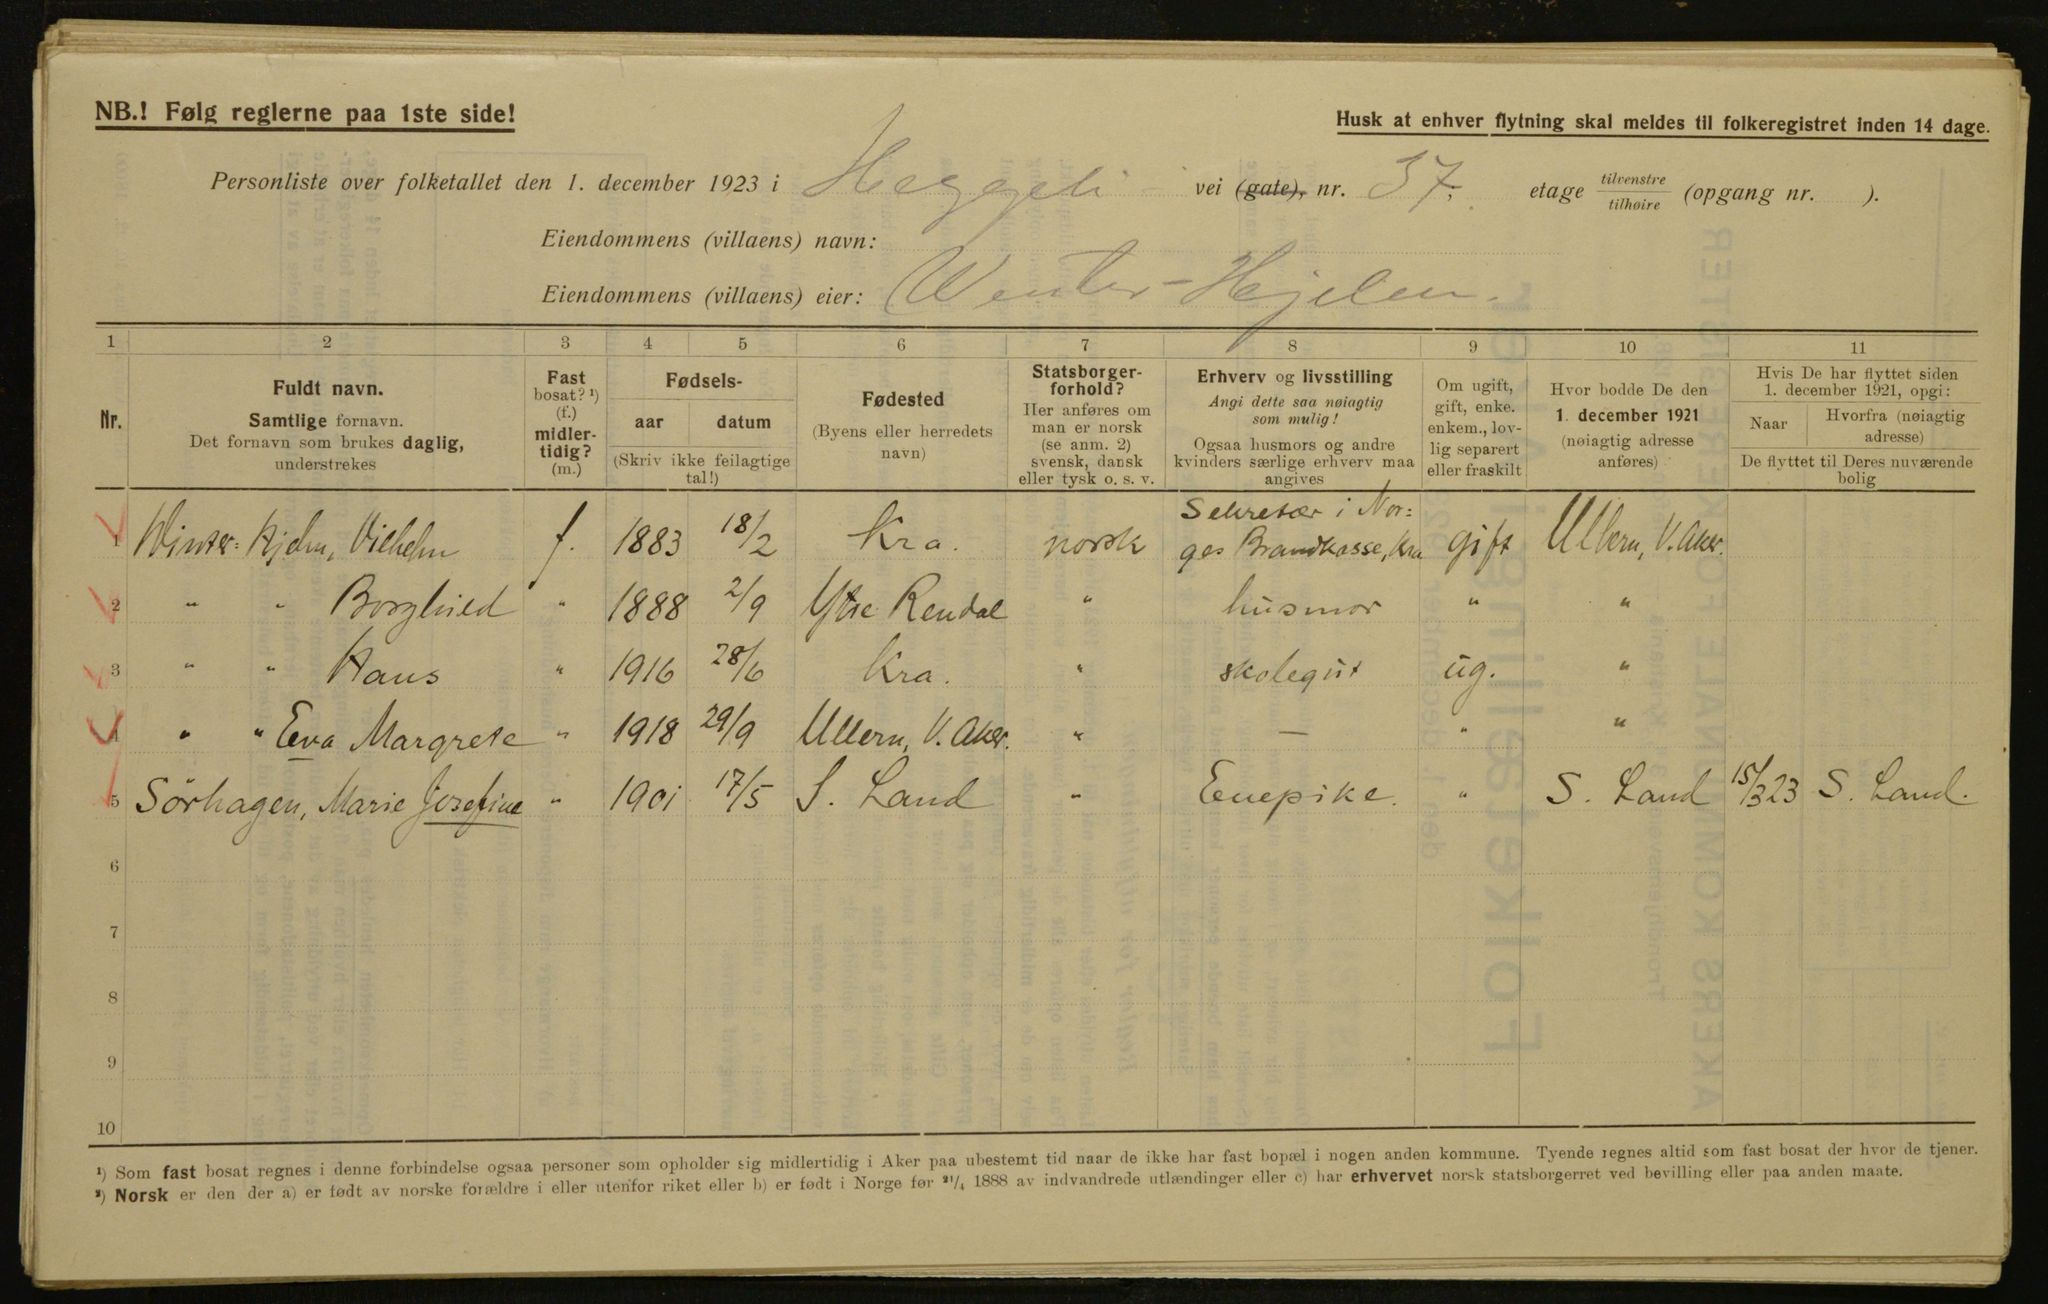 NB.! Følg reglerne paa 1ste side!
Husk at enhver flytning skal meldes til folkeregistret inden 14 dage.
Personliste over folketallet den 1. december 1923 i Heggeli - vei (gate), nr. 37. etage tilvenstre / tilhøire (opgang nr. ).
Eiendommens (villaens) navn:
Eiendommens (villaens) eier: Winter-Hjelm.
1 2 3 4 5 6 7 8 9 10 11
Nr.
Fuldt navn.
Samtlige fornavn.
Det fornavn som brukes daglig,
understrekes
Fast
bosat? ¹)
(f.)
midler-
tidig?
(m.)
Fødsels-
aar datum
(Skriv ikke feilagtige
tal!)
Fødested
(Byens eller herredets
navn)
Statsborger-
forhold?
Her anføres om
man er norsk
(se anm. 2)
svensk, dansk
eller tysk o. s. v.
Erhverv og livsstilling
Angi dette saa nøiagtig
som mulig!
Ogsaa husmors og andre
kvinders særlige erhverv maa
angives
Om ugift,
gift, enke.
enkem., lov-
lig separert
eller fraskilt
Hvor bodde De den
1. december 1921
(nøiagtig adresse
anføres)
Hvis De har flyttet siden
1. december 1921, opgi:
Naar
Hvorfra (nøiagtig
adresse)
De flyttet til Deres nuværende
bolig
1 Winter-Hjelm, Vilhelm f. 1883 18/2 Kra. norsk Sekretær i Nor:
ges Brandkasse, Kra gift Ullern, V. Aker.
2 " " Borghild " 1888 2/9 Ytre Rendal " husmor " "
3 " " Hans " 1916 28/6 Kra. " skolegut ug. "
4 " " Eva Margrete " 1918 29/9 Ullern, V. Aker. " — " "
5 Sörhagen, Marie Josefine " 1901 17/5 S. Land " Enepike. " S. Land 15/3 23 S. Land.
6
7
8
9
10
¹) Som fast bosat regnes i denne forbindelse ogsaa personer som opholder sig midlertidig i Aker paa ubestemt tid naar de ikke har fast bopæl i nogen anden kommune. Tyende regnes altid som fast bosat der hvor de tjener.
²) Norsk er den der a) er født av norske forældre i eller utenfor riket eller b) er født i Norge før ²¹/₄ 1888 av indvandrede utlændinger eller c) har erhvervet norsk statsborgerret ved bevilling eller paa anden maate.